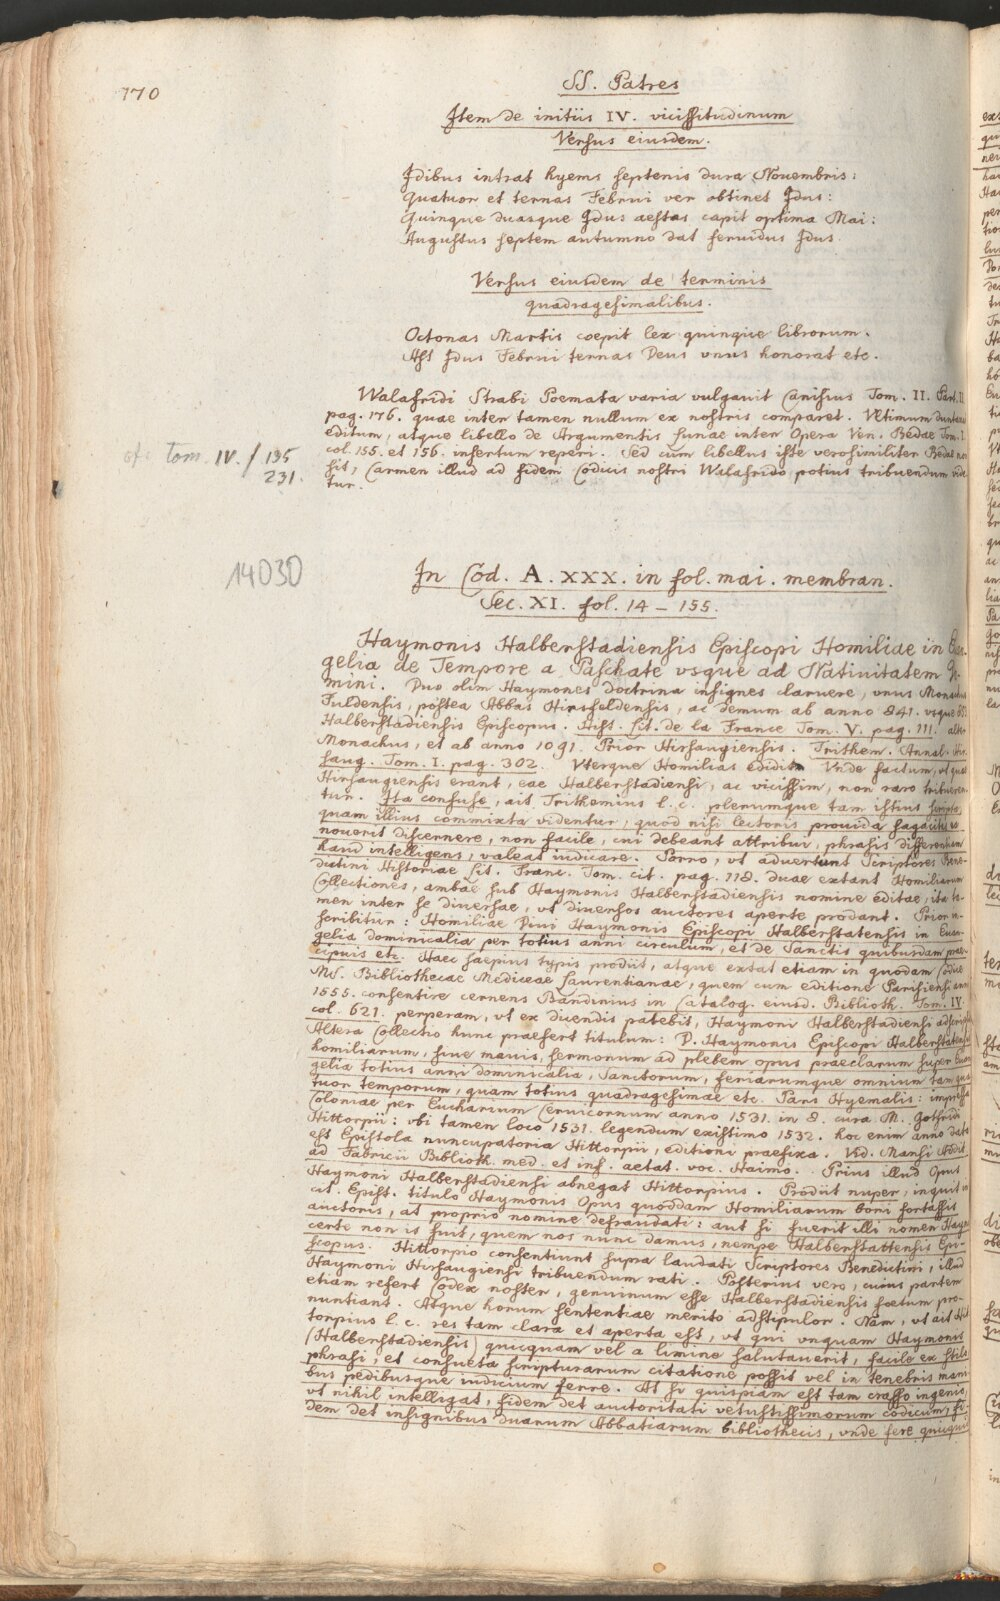 170
SS. Patres
Item de initiis IV. vicissitudinum
Versus eiusdem.
Idibus intrat hyems septenis dura Novembris:
Quatuor et ternas Februi ver obtinet Idus:
Quinque duasque Idus aestas capit optima Mai:
Augustus septem autumno dat fervidus Idus.
Versus eiusdem de terminis
quadragesimalibus.
Octonas Martis coepit lex quinque librorum.
Ast Idus Februi ternas Deus vnus honorat etc.
Walafridi Strabi Poemata varia vulgauit Canisius Tom. II. Part. II
pag. 176. quae inter tamen nullum ex nostris comparet. Vltimum
editum, atque libello de Argumentis lunae inter Opera Ven. Bedae Tom. I.
col. 155. et 156. insertum reperi. Sed cum libellus iste verosimiliter Bedae non
sit, Carmen illud ad fidem Codicis nostri Walafrido potius tribuendum vide
tur.
Tom. IV. / 195
231.
14030
In Cod. A. XXX. in fol. mai. membran.
Sec. XI. fol. 14 – 155.
Haymonis Halberstadiensis Episcopi Homiliae in Euan-
gelia de Tempore a Paschate vsque ad Natiuitatem
mini. Duo olim Haymones doctrina insignes claruere, vnus Monachus
Fuldensis, postea Abbas Hirsfeldensis, ac demum ab anno 841. vsque 853
Halberstadiensis Episcopus. Hist. lit. de la France Tom. V. pag. 111. alter
Monachus, et ab anno 1091. Prior Hirsaugiensis. Trithem. Annal. Hir
saug. Tom. I. pag. 302. Vterque Homilias edidit. Vnde factum, vt quae
Hirsaugiensis erant, eae Halberstadiensi, ac vicissim, non raro tribueren
tur. Ita confuse, ait Trithemius l. c. plerumque tam istius scripta,
quam illius commixta videntur, quod nisi lectoris prouida sagacitas
nouerit discernere, non facile, cui debeant attribui, phrasis differentiam
haud intelligens, valeat iudicare. Porro, vt aduertunt Scriptores Bene-
dictini Historiae Lit. Franc. Tom. cit. pag. 118. duae extant Homiliarum
Collectiones, ambae sub Haymonis Halberstadiensis nomine editae, ita ta-
men inter se diuersae, vt diuersos auctores aperte prodant. Prior in-
scribitur: Homiliae Diui Haymonis Episcopi Halberstatensis in Euan-
gelia dominicalia per totius anni circulum, et de Sanctis quibusdam prae-
cipuis etc. Haec saepius typis prodiit, atque extat etiam in quodam Codice
MS. Bibliothecae Mediceae Laurentianae, quem cum editione Parisiensi anni
1555. consentire cernens Bandinius in Catalog. eiusd. Biblioth. Tom. IV.
col. 621. perperam, vt ex dicendis patebit, Haymoni Halberstadiensi adscripsit
Altera Collectio hunc praefert titulum: D. Haymonis Episcopi Halberstatensis
homiliarum, siue mauis, sermonum ad plebem opus praeclarum super Euan
gelia totius anni dominicalia, Sanctorum, feriarumque omnium tam qua
tuor temporum, quam totius quadragesimae etc. Pars Hyemalis: impressa
Coloniae per Eucharium Ceruicornum anno 1531. in 8. cura M. Gothfridi
Hittorpii: vbi tamen loco 1531. legendum existimo 1532. hoc enim anno data
est Epistola nuncupatoria Hittorpii, editioni praefixa. Vid. Mansi Addit.
ad Fabricii Biblioth. med. et inf. aetat. voc. Haimo. Prius illud Opus
Haymoni Halberstadiensi abnegat Hittorpius. Prodiit nuper, inquit in
cit. Epist. titulo Haymonis Opus quoddam Homiliarum boni fortassis
auctoris, at proprio nomine defraudati: aut si fuerit illi nomen Haymo
certe non is fuit, quem nos nunc damus, nempe Halberstattensis Epi-
scopus. Hittorpio consentiunt supra laudati Scriptores Benedictini, illud
Haymoni Hirsaugiensi tribuendum rati. Posterius vero, cuius partem
etiam refert Codex noster, genuinum esse Halberstadiensis foetum pro-
nuntiant. Atque horum sententiae merito adstipulor. Nam, vt ait Hit
torpius l. c. res tam clara et aperta est, vt qui vnquam Haymonis
(Halberstadiensis) quicquam vel a limine salutauerit, facile ex stilo
phrasi, et consueta scripturarum citatione possit vel in tenebris mani-
bus pedibusque iudicium ferre. At si quispiam est tam crasso ingenio,
vt nihil intelligat, fidem det auctoritati vetustissimorum codicum, fi-
dem det insignibus duarum Abbatiarum bibliothecis, vnde fere quicquid